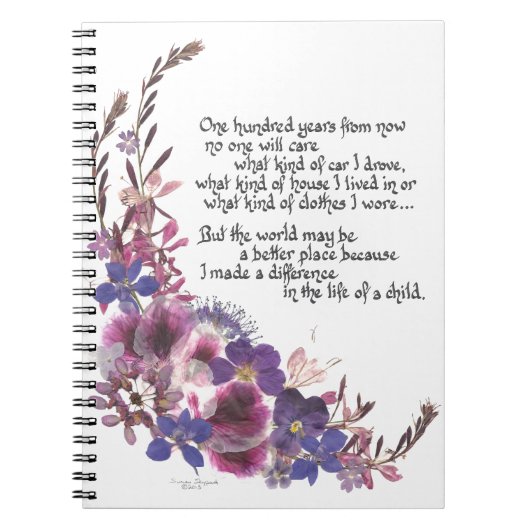 One hundred years from now
no one will care
what kind of car I drove,
what kind of house I lived in or
what kind of clothes I wore...
But the world may be
a better place because
I made a difference
in the life of a child.
©2013